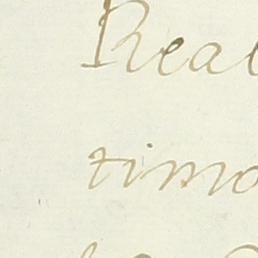 Real
timo